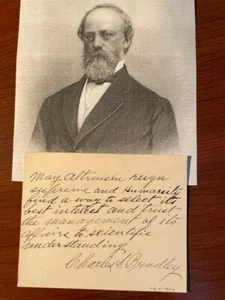 May Altruism reign
supreme and Humanity
find a way to select its
best intellect and trust
the management of its
affairs to scientific
understanding
Charles S Bradley